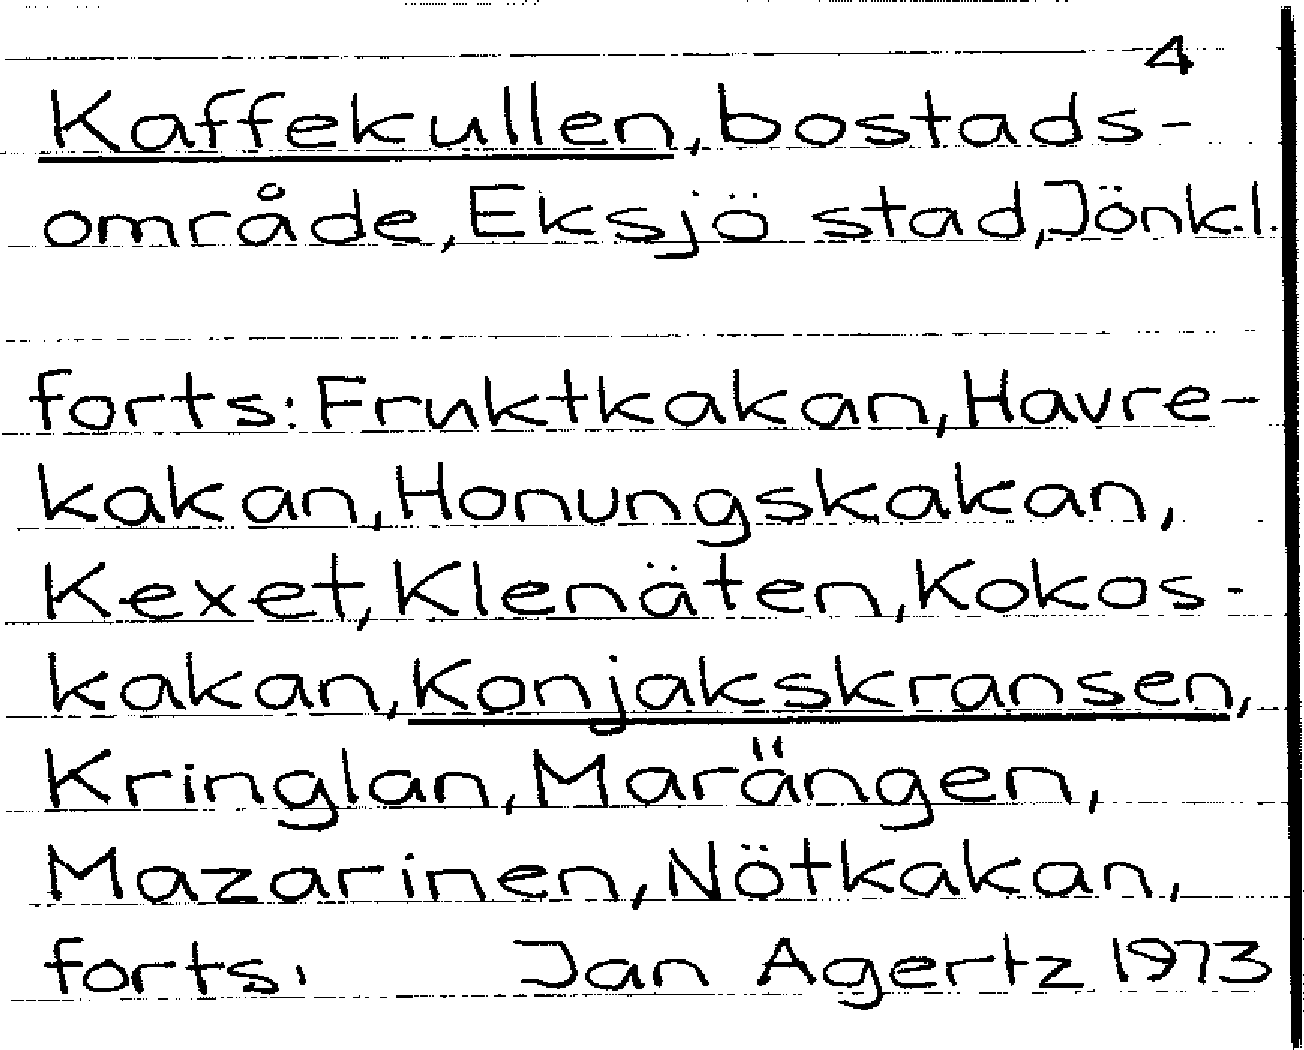 4
Kaffekullen, bostads-
område, Eksjö stad, Jönk.l.
forts: Fruktkakan, Havre-
kakan, Honungskakan,
Kexet, Klenäten, Kokos-
kakan, Konjakskransen,
Kringlan, Marängen,
Mazarinen, Nötkakan,
forts. Jan Agertz 1973